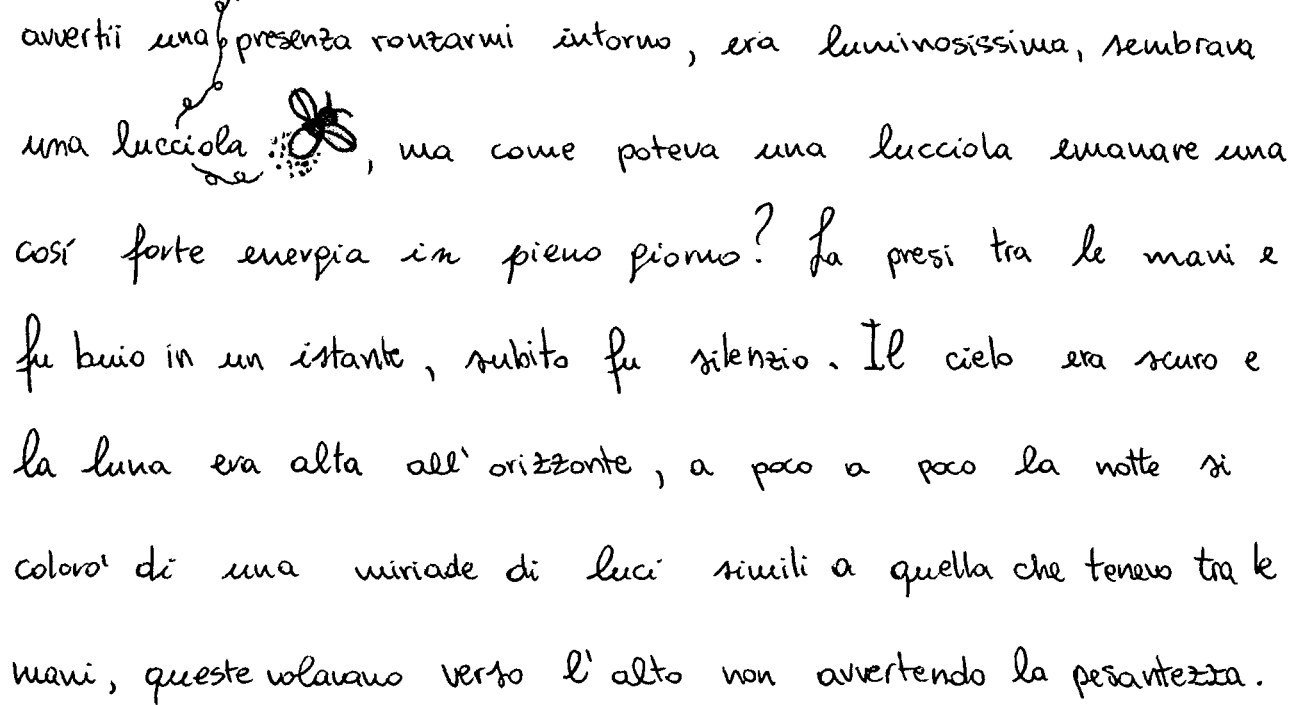 avvertii una presenza ronzarmi intorno, era luminosissima, sembrava
una lucciola, ma come poteva una lucciola emanare una
così forte energia in pieno giorno? La presi tra le mani e
fu buio in un istante, subito fu silenzio. Il cielo era scuro e
la luna era alta all'orizzonte, a poco a poco la notte si
colorò di una miriade di luci simili a quella che tenevo tra le
mani, queste volavano verso l'alto non avvertendo la pesantezza.